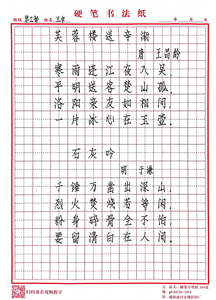 硬笔书法纸
班级 姓名 年 月 日
芙蓉楼送辛渐
唐 王昌龄
寒雨连江夜入吴，
平明送客楚山孤。
洛阳亲友如相问，
一片冰心在玉壶。
石灰吟
明 于谦
千锤万凿出深山，
烈火焚烧若等闲。
粉身碎骨全不怕，
要留清白在人间。
扫码观看视频教学